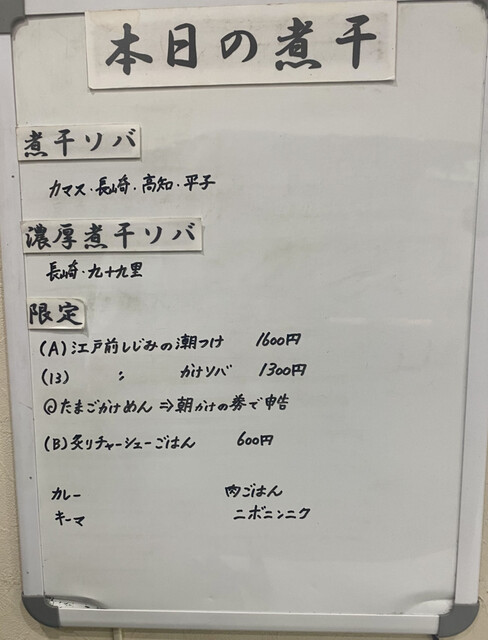 本日の煮干
煮干ソバ
カマス・長崎・高知・平子
濃厚煮干ソバ
長崎・九十九里
限定
(A)江戸前しじみの潮つけ 1600円
(13) 〃 かけソバ 1300円
@たまごかけめん ⇒朝かけの券で申告
(B)炙りチャーシューごはん 600円
カレー 肉ごはん
キーマ ニボニンニク